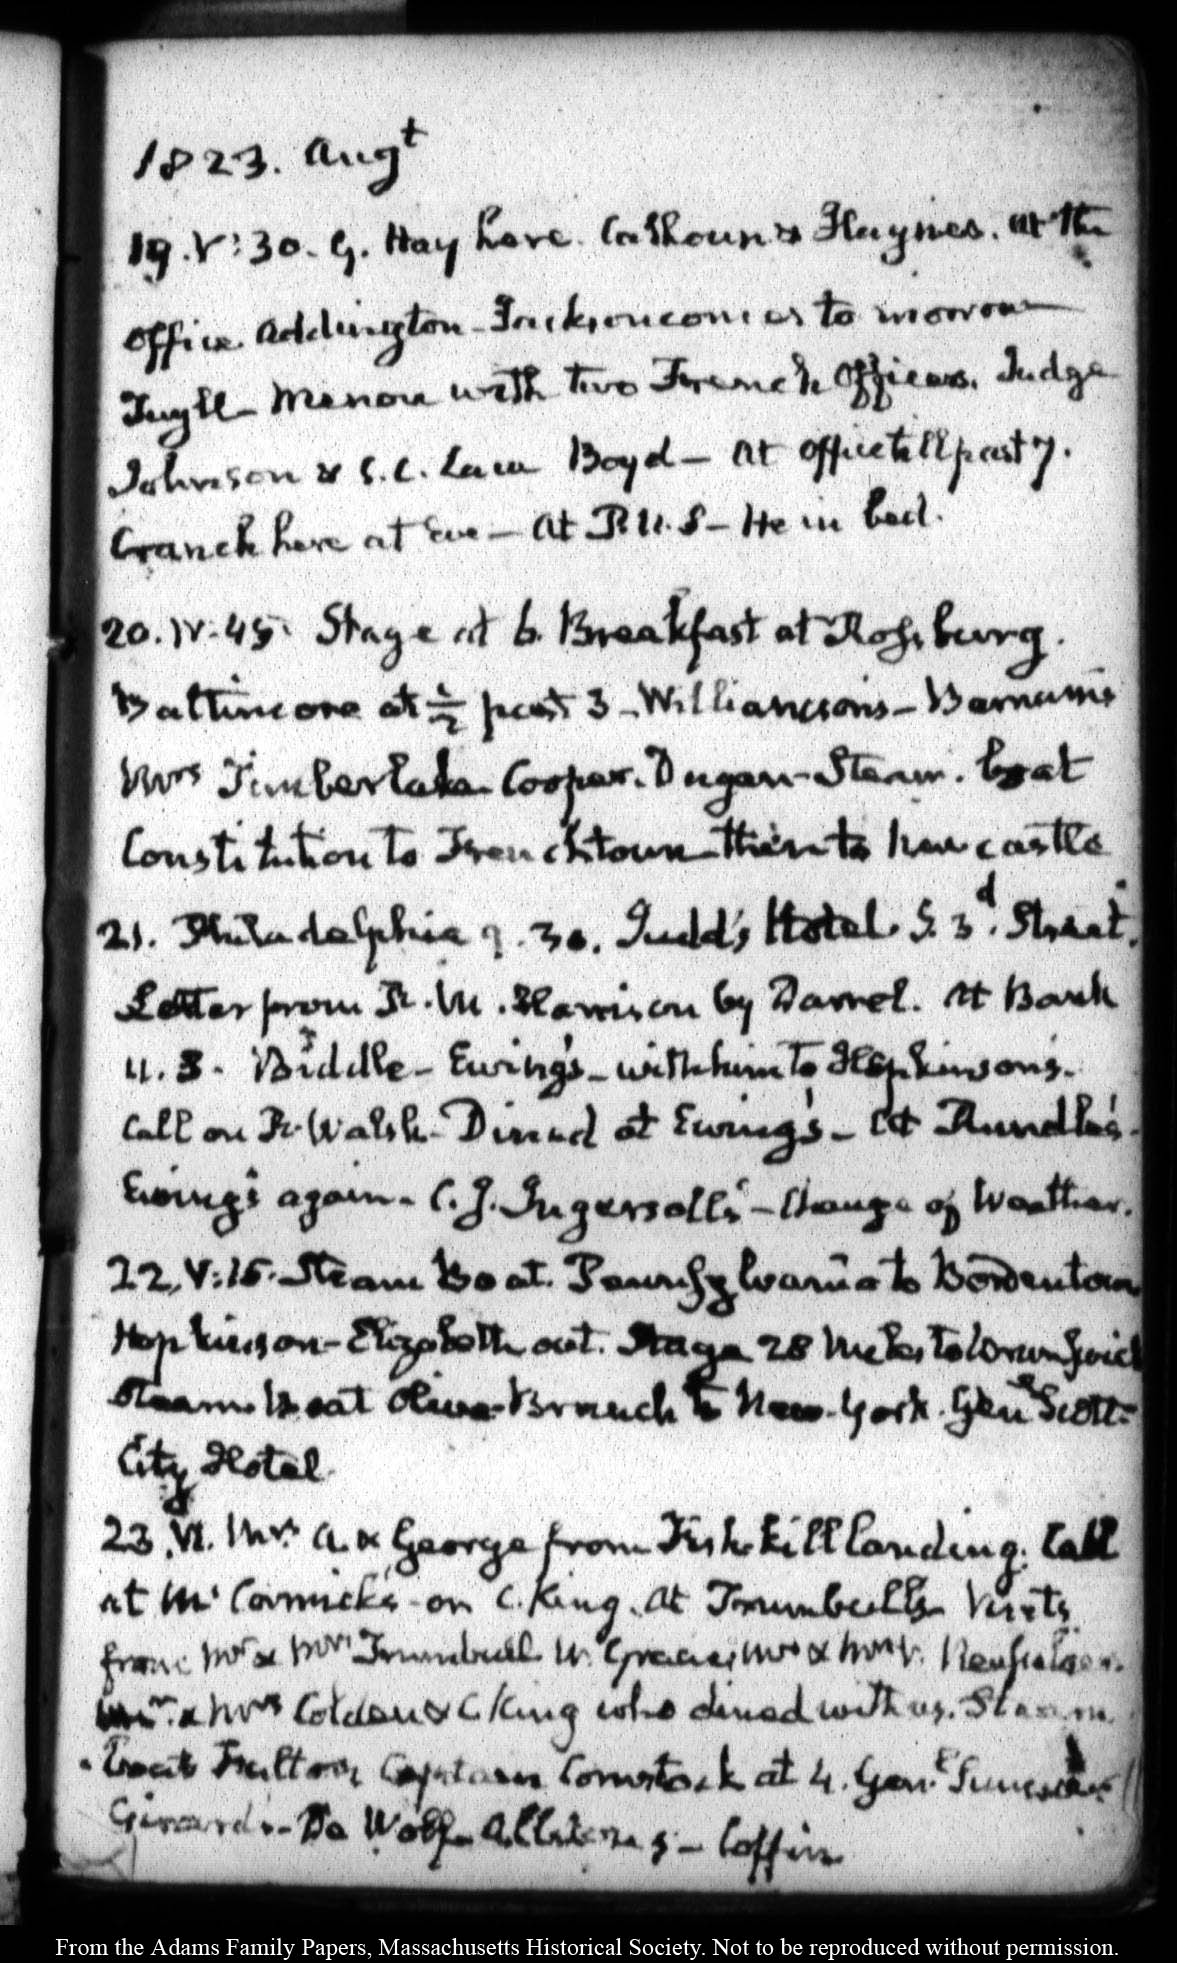 1823. Augt
19. V:30. G. Hay here. Calhoun & Haynes. at the
Office. Addington - Jackson comes to morrow
Tuyll - Menou with two French Officers. Judge
Johnson & S. C. Law Boyd - At office till past 7.
Cranch here at Eve - At P. U. S - He in bed.
20. IV.45. Stage at 6. Breakfast at Rossburg.
Baltimore at ½ past 3 - Williamson's - Barnum's
Mrs Timberlake. Cooper. Dugan - Steam. boat
Constitution to Frenchtown - then to Newcastle
21. Philadelphia 9.30. Judd's Hotel. S. 3d. Street.
Letter from R. M. Harrison by Darrel. At Bank
U.S. Biddle - Ewing's - with him to Hopkinson's.
Call on R. Walsh - Dined at Ewing's - At Rundle's -
Ewing's again - C. J. Ingersoll's - Change of Weather.
22. V:15. Steam Boat. Pennsylvania to Bordentown
Hopkinson - Elizabeth out. Stage 28 Miles to Brunswick
Steam Boat Olive Branch to New-York. Genl Scott -
City Hotel.
23. VI. Mrs. A. & George from Fishkill landing. Call
at McCormick's - on C. King. At Trumbull's Visits
from Mr & Mrs Trumbull W. Gracie, Mr & Mrs V. Rensselaer.
Mr. & Mrs Colden & C King who dined with us. Steam
Boat Fulton, Captain Comstock at 4. Genl
Girard's - De Wolf - - Coffin
From the Adams Family Papers, Massachusetts Historical Society. Not to be reproduced without permission.